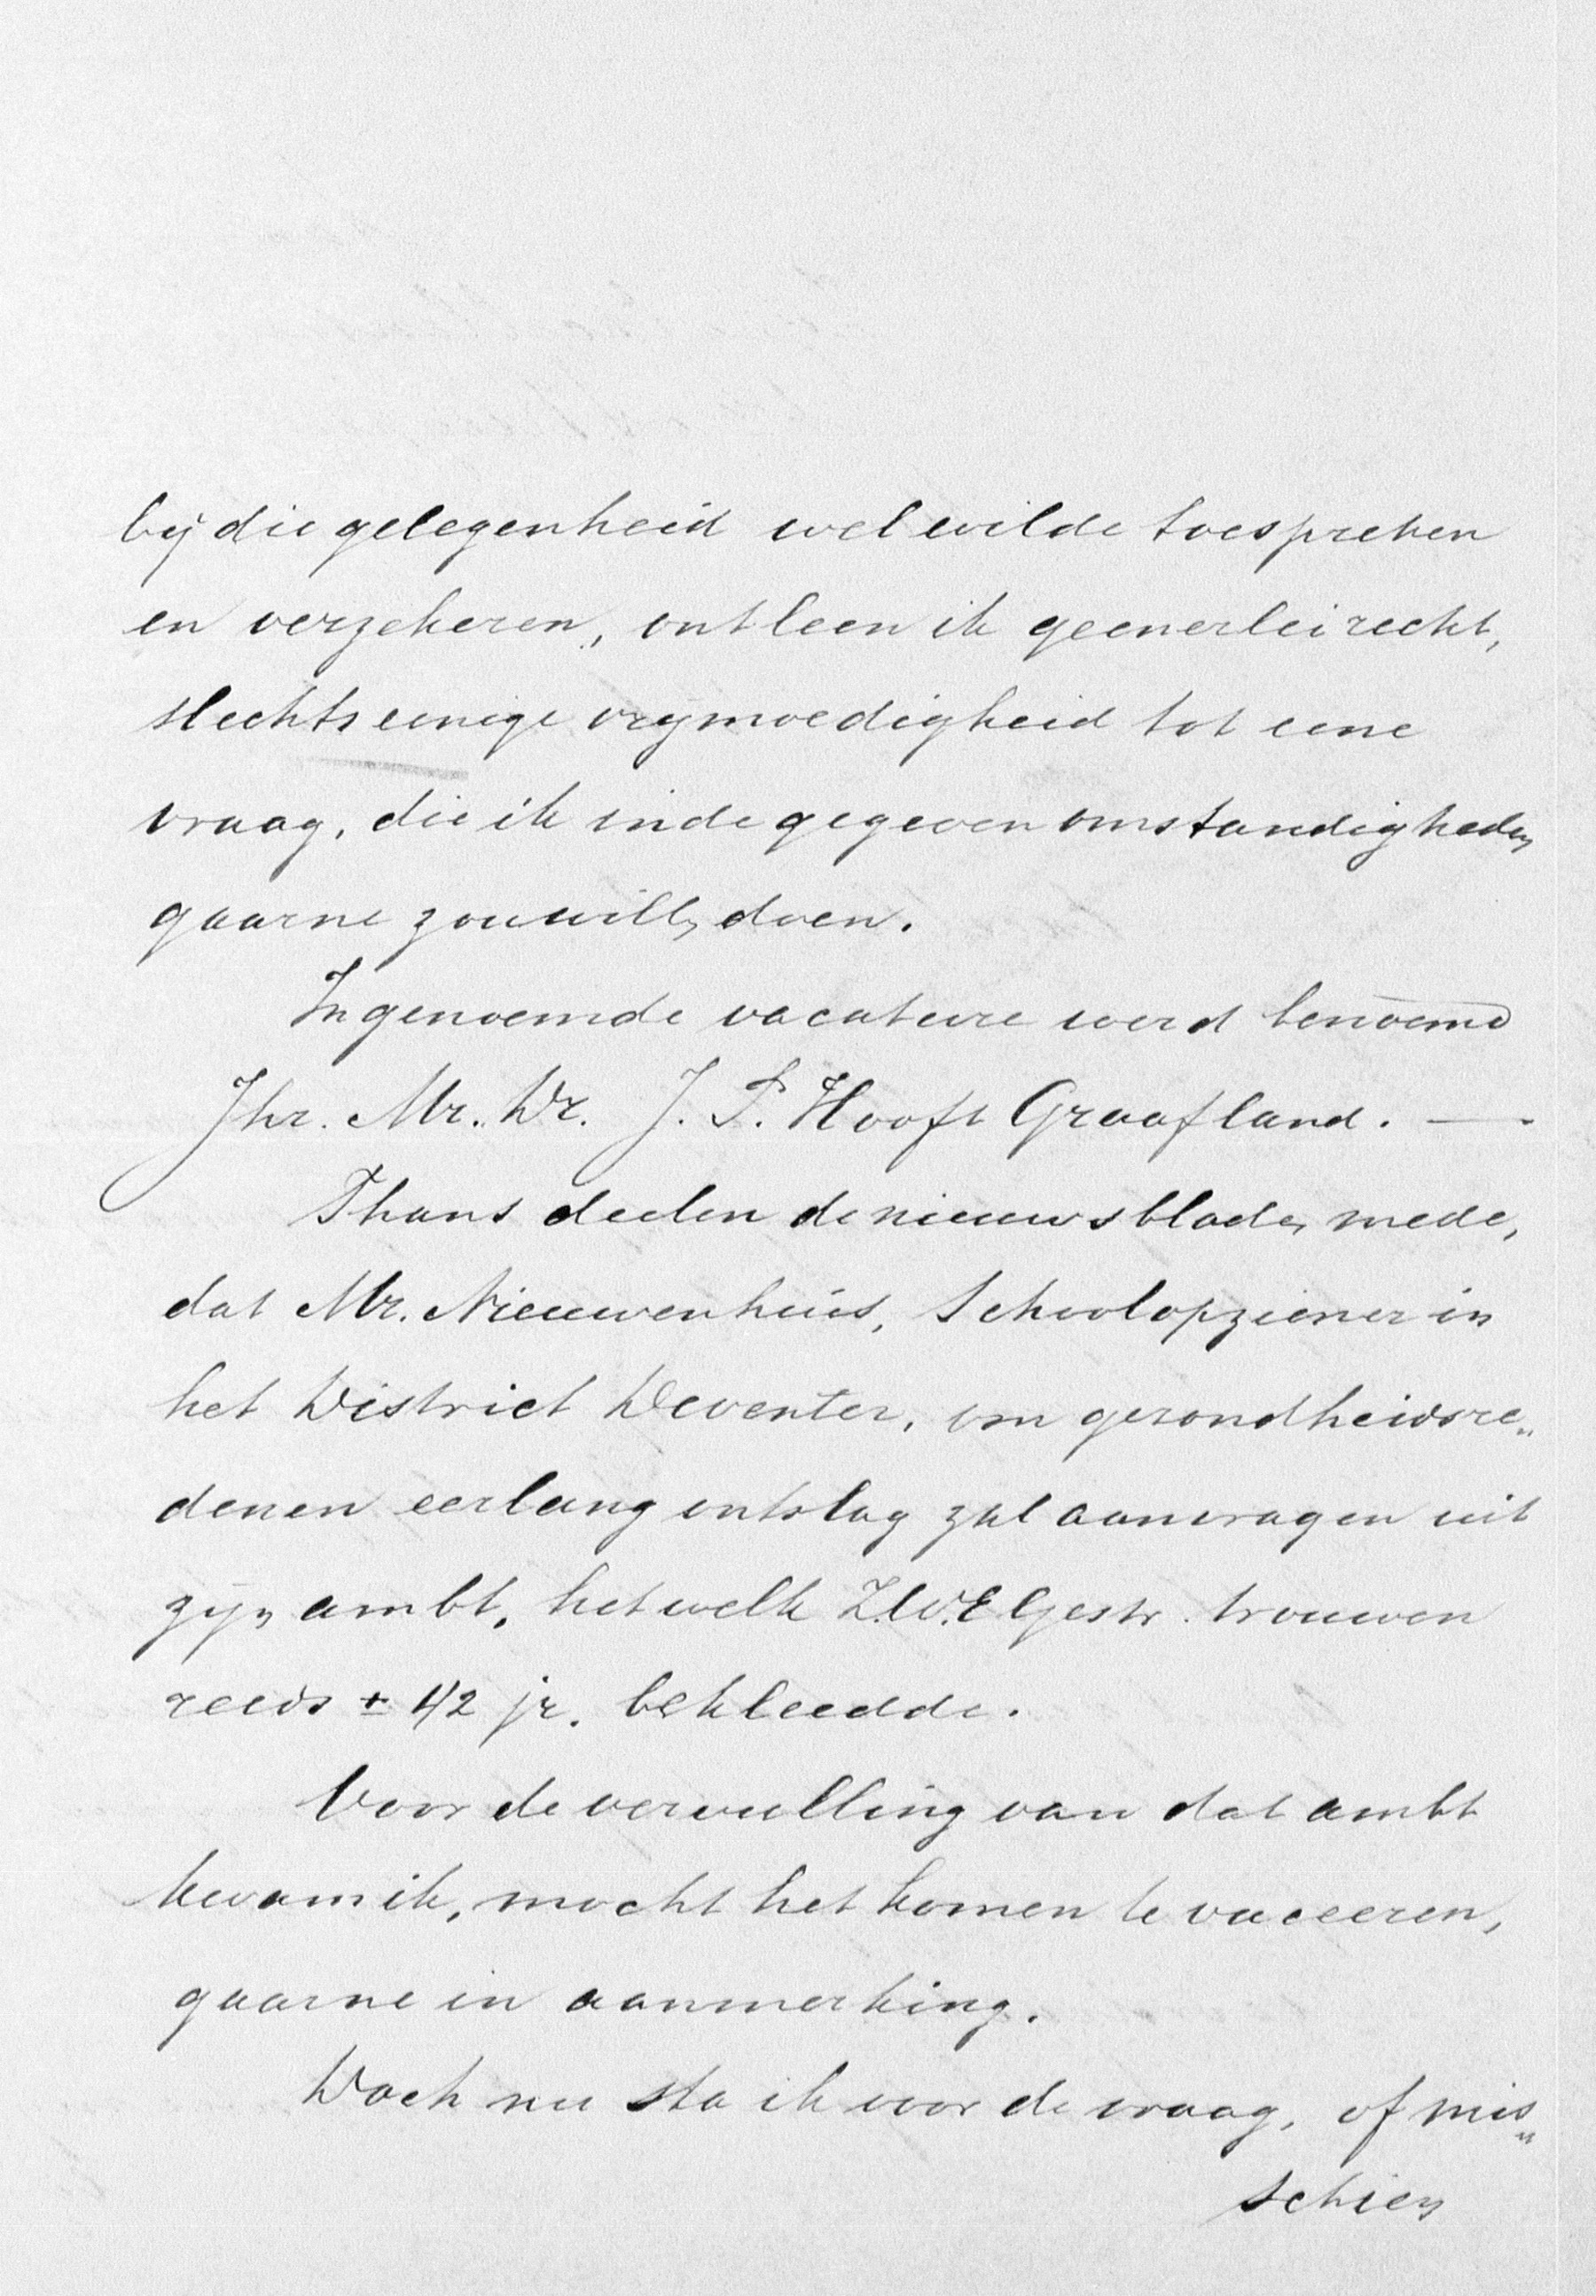 bij die gelegenheid wel wilde toespreken
en verzekeren, ontleen ik geenerlei recht,
slechts eenige vrijmoedigheid tot eene
vraag, die ik in de gegeven omstandigheden
gaarne zou willen doen.
In genoemde vacature werd benoemd
Jhr. Mr. Dr. J. P. Hooft Graafland. —
Thans deelen de nieuwsbladen mede,
dat Mr. Nieuwenhuis, Schoolopziener in
het District Deventer, om gezondheidsre„
denen eerlang ontslag zal aanvragen uit
zijn ambt, hetwelk Z.W.E Gestr. trouwen
reeds ± 42 jr. bekleedde.
Voor de vervulling van dat ambt
kwam ik, mocht het komen te vaceeren,
gaarne in aanmerking.
Doch nu sta ik voor de vraag, of mis„
schien